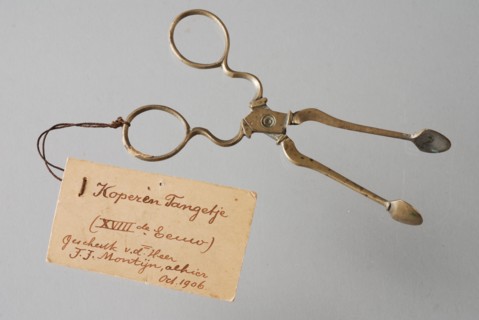 Koperen Tangetje
(XVIIIde Eeuw)
Geschenk v.d. Heer
J.J. Montijn, alhier
Oct. 1906